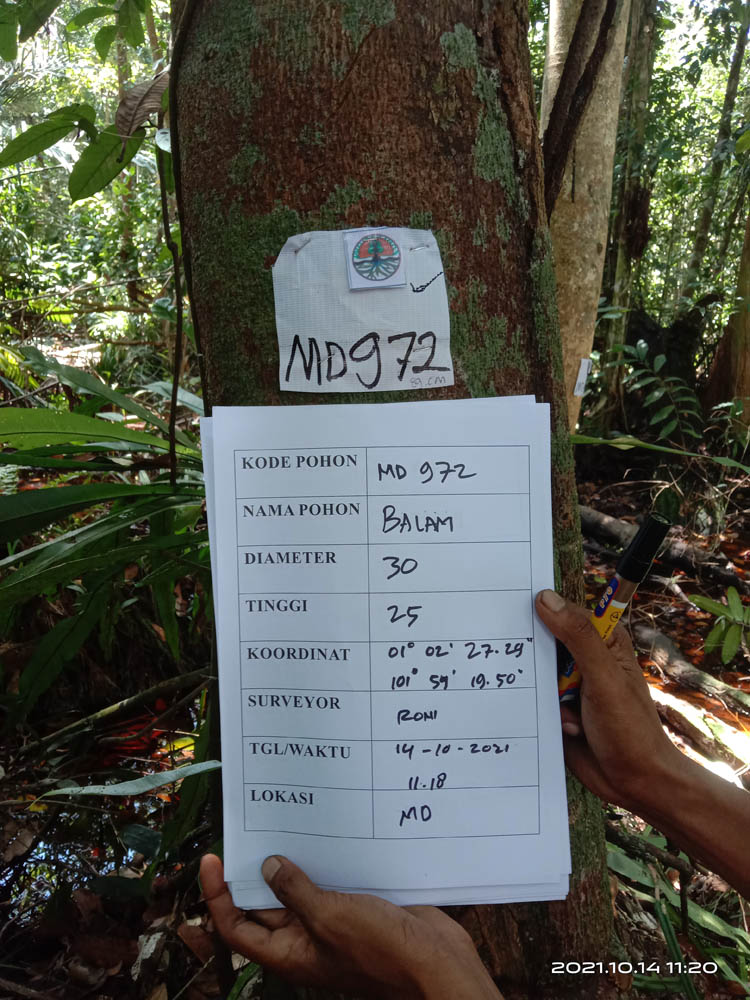 MD972
89 cm
KODE POHON MD 972
NAMA POHON BALAM
DIAMETER 30
TINGGI 25
KOORDINAT 01° 02' 27.29"
101° 59' 19.50"
SURVEYOR RONI
TGL/WAKTU 14-10-2021
11.18
LOKASI MD
2021.10.14 11:20